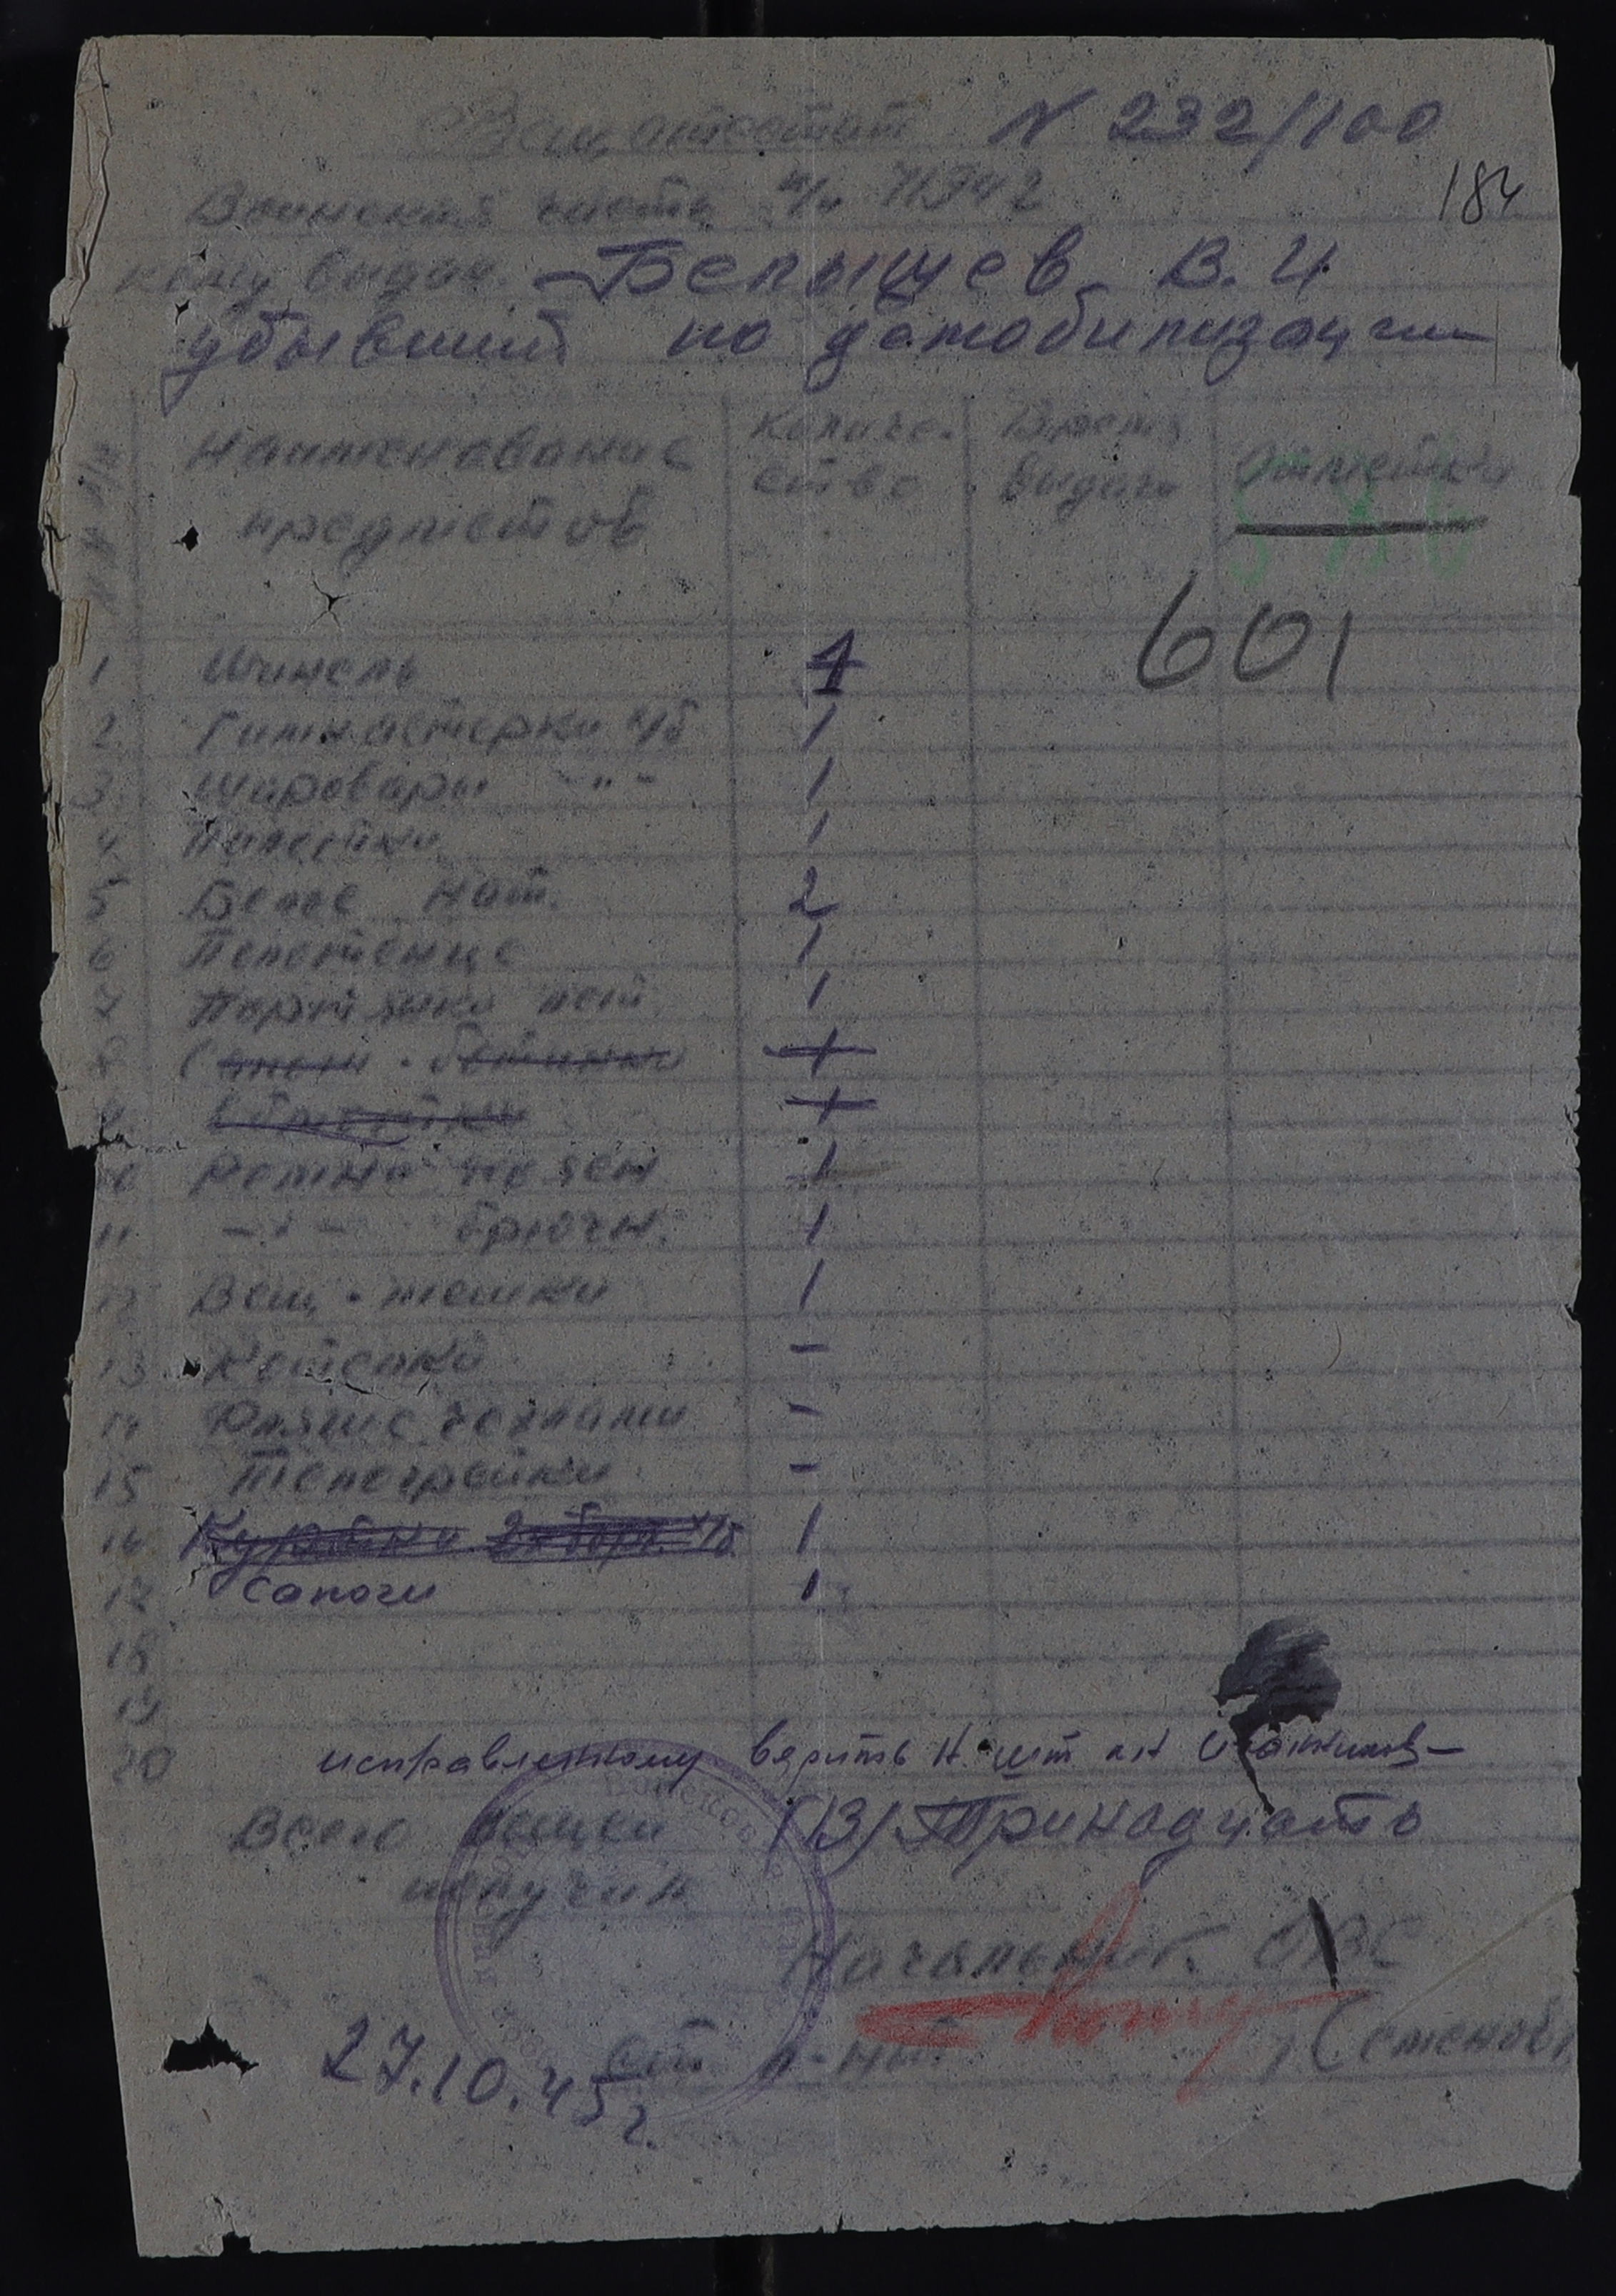 Вещ. атестат N 232/100
184
Воинская часть п/п 71342
кому выдан. Белышев В. И
убывший по демобилизации
№ № п/п Наименование предметов Количество Время выдачи Отметки
586
601
1 Шинель 1
2 Гимнастерки х/б 1
3 Шаровары -"- 1
4 Пилотки 1
5 Белье нат. 2
6 Полотенце 1
7 Портянки лет. 1
8 Сапоги - ботинки 1
9 1
10 Ремни поясн 1
11 -"- брючн. 1
12 Вещ. мешки 1
13 Котелки -
14 Фляги с чехлами -
15 Телогрейки -
16 Куртки х/б 1
17 Сапоги 1
18
19
20
исправленному верить Н. шт
Всего вещей (13) Тринадцать
получил
Начальник ОВС
ст. л-нт. /Семенов/
27.10.45г.